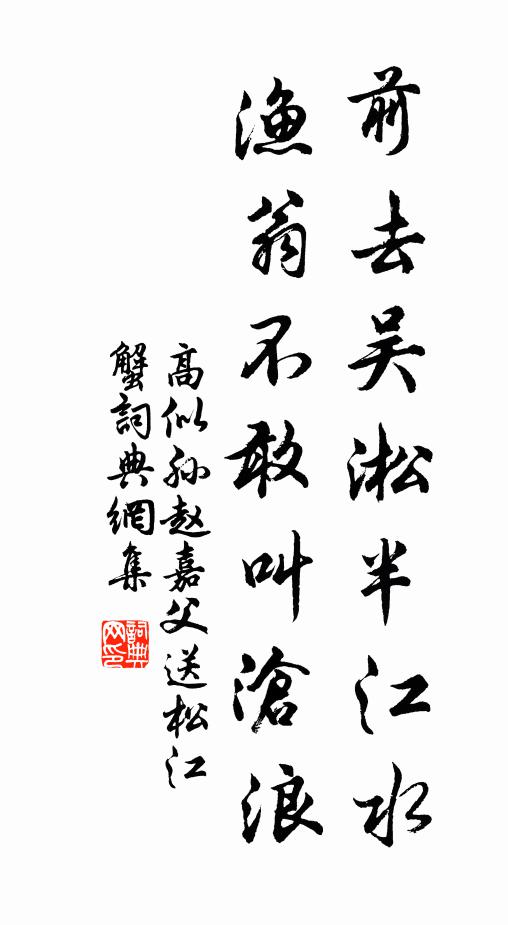 前去吴淞半江水
渔翁不敢叫滄浪
高似孙赵嘉父送松江
蟹詞典網集
詞典网印